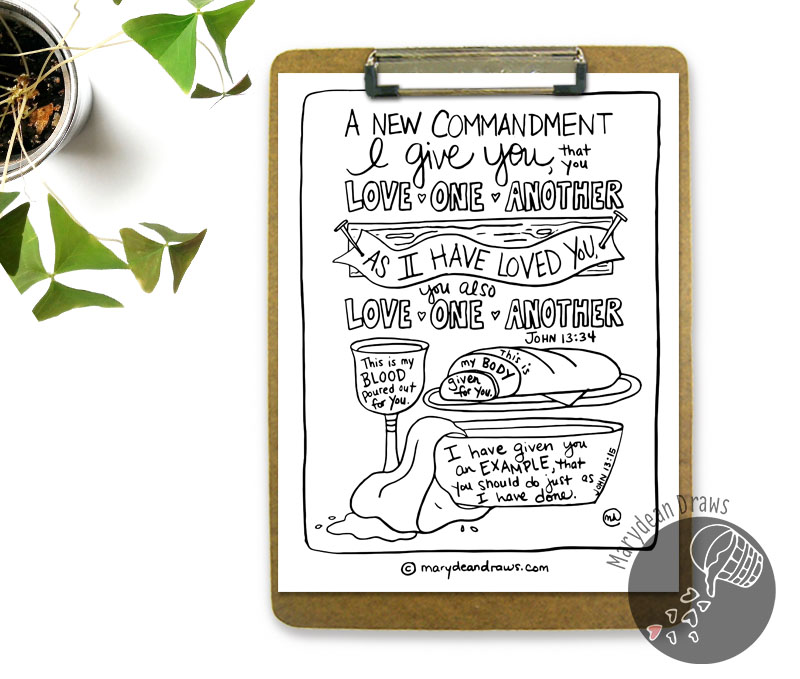 A NEW COMMANDMENT
I give you, that you
LOVE ♥ ONE ♥ ANOTHER
AS I HAVE LOVED YOU,
you also
LOVE ♥ ONE ♥ ANOTHER
JOHN 13:34
This is my
BLOOD
poured out
for You.
This is
my BODY
given
for You.
I have given you
an EXAMPLE, that
you should do just as
I have done.
JOHN 13:15
MH
© marydeandraws.com
Marydean Draws